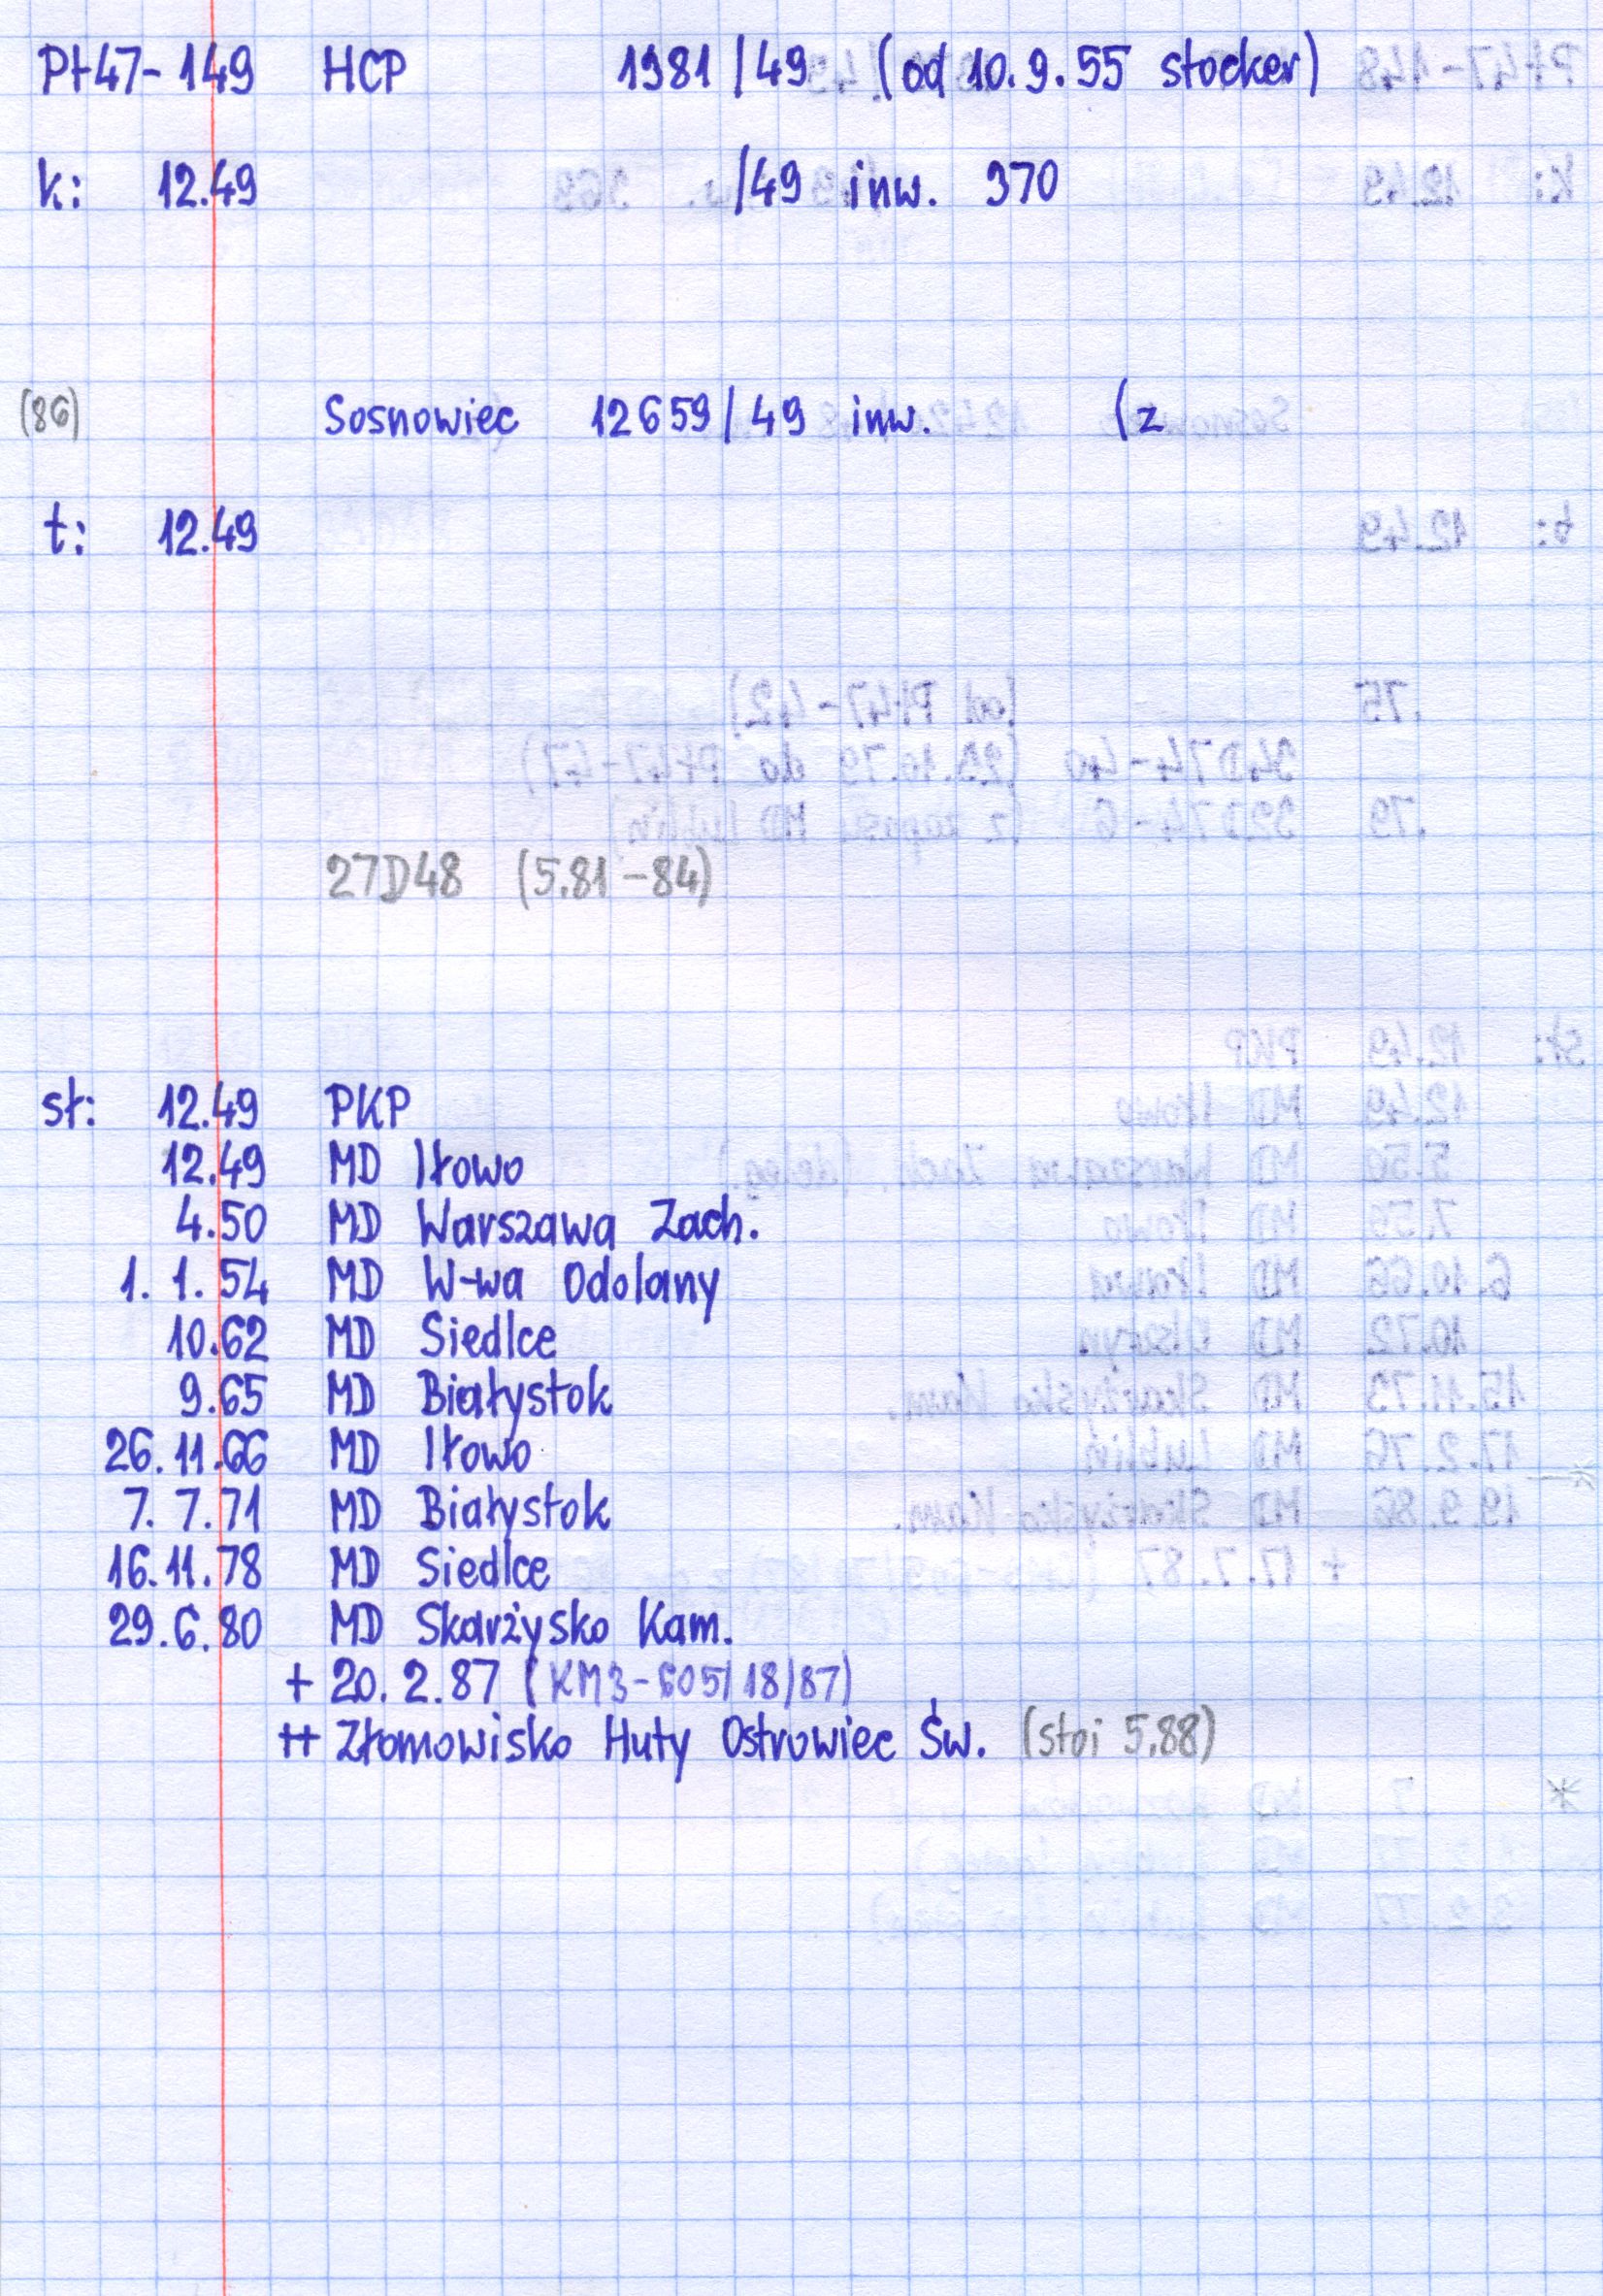 Pt47-149 HCP 1981/49 (od 10.9.55 stocker)
k: 12.49 /49 inw. 370
(86) Sosnowiec 12659/49 inw. (z
t: 12.49
27D48 (5.81-84)
sł: 12.49 PKP
12.49 MD Iłowo
4.50 MD Warszawa Zach.
1. 1.54 MD W-wa Odolany
10.62 MD Siedlce
9.65 MD Białystok
26.11.66 MD Iłowo
7. 7.71 MD Białystok
16.11.78 MD Siedlce
29.6.80 MD Skarżysko Kam.
+ 20.2.87 (KM3-605/18/87)
++ Złomowisko Huty Ostrowiec Św. (stoi 5.88)